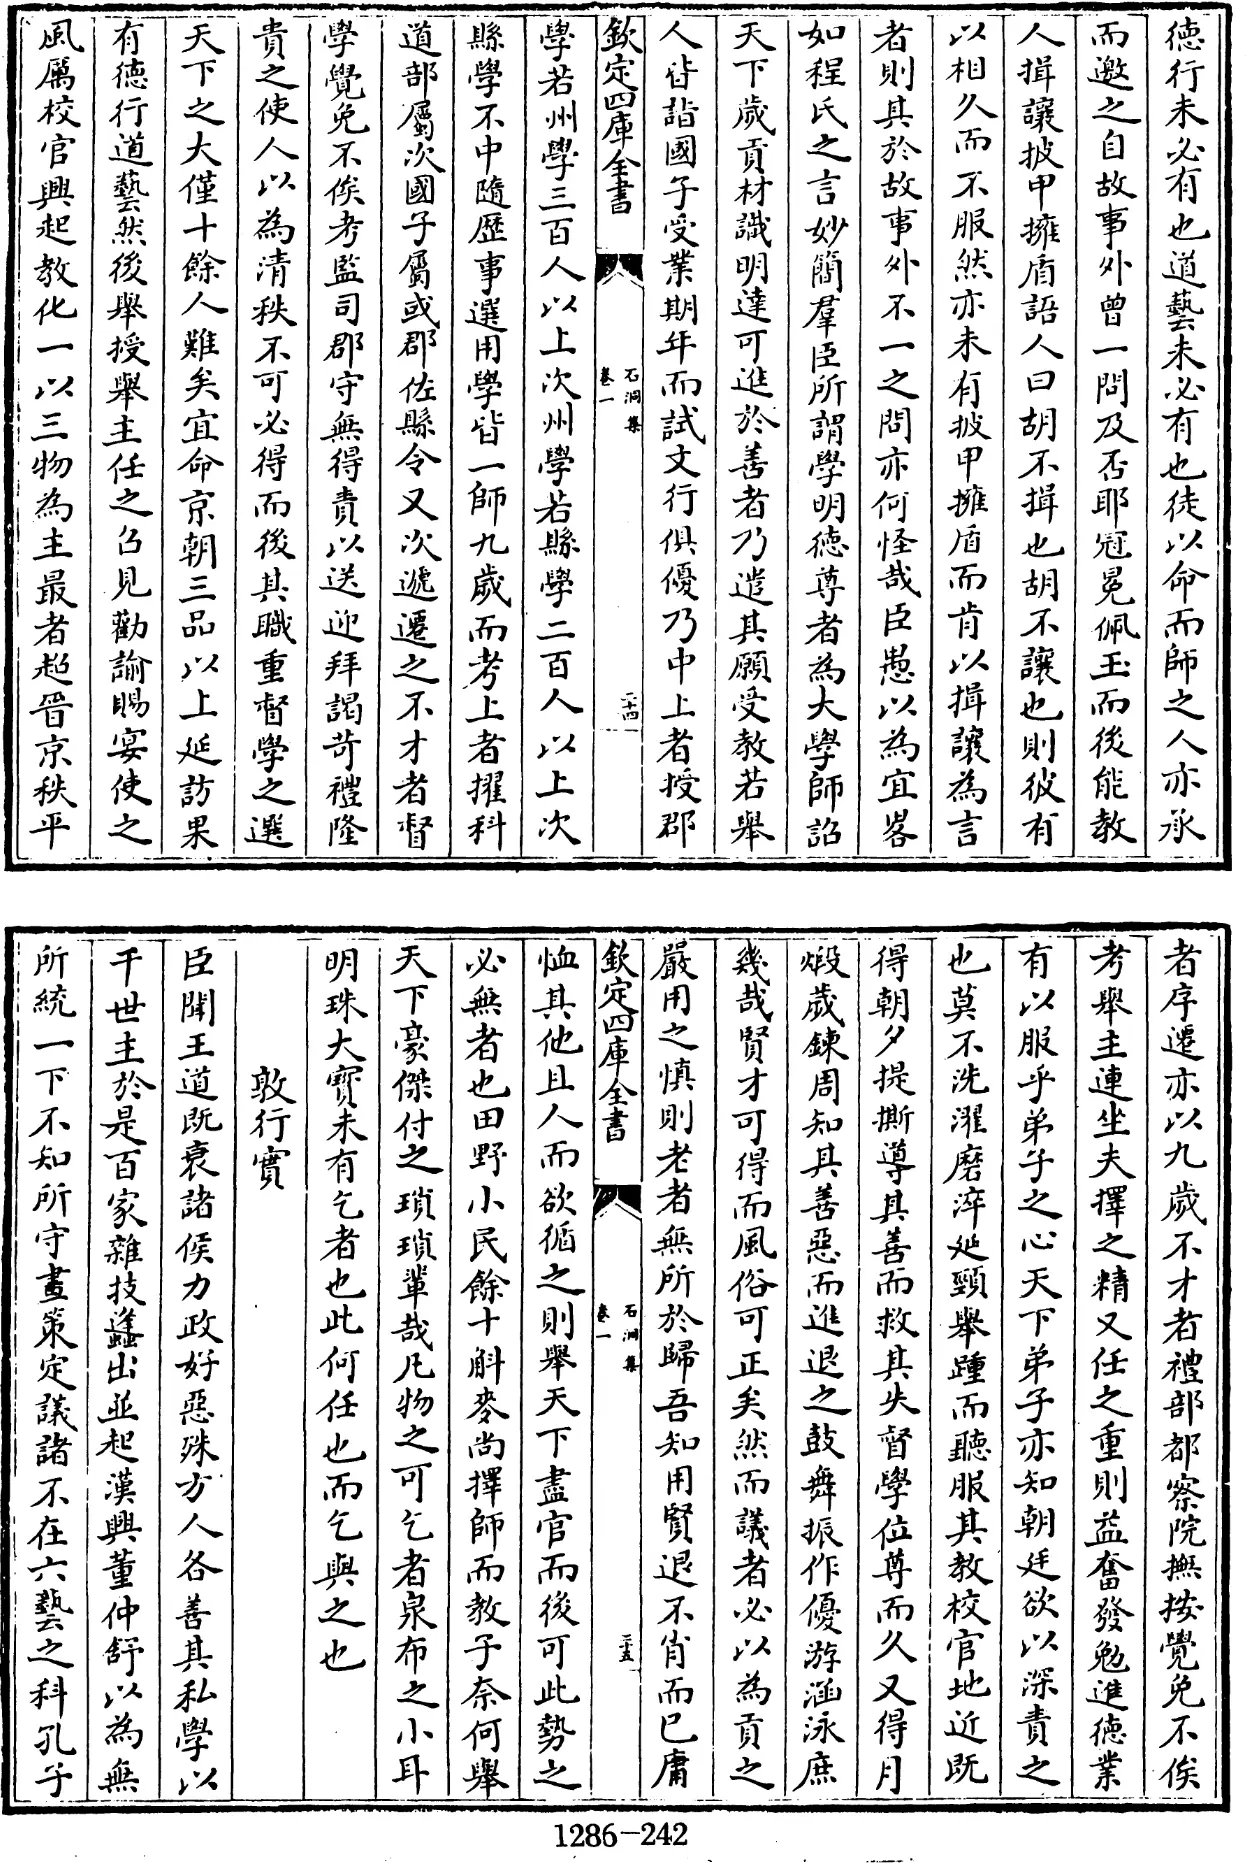 德行未必有也道藝未必有也徒以命而師之人亦承
而邀之自故事外曾一問及否耶冠冕佩玉而後能教
人揖讓披甲擁盾語人曰胡不揖也胡不讓也則彼有
以相久而不服然亦未有披甲擁盾而肯以揖讓為言
者則其於故事外不一之問亦何怪哉臣愚以為宜畧
如程氏之言妙簡羣臣所謂學明德尊者為大學師詔
天下歲貢材識明達可進於善者乃遣其願受教若舉
人皆詣國子受業期年而試文行俱優乃中上者授郡
欽定四庫全書
石洞集
卷一
二十四
學若州學三百人以上次州學若縣學二百人以上次
縣學不中隨歷事選用學皆一師九歲而考上者擢科
道部屬次國子屬或郡佐縣令又次遞遷之不才者督
學覺免不俟考監司郡守無得責以送迎拜謁苛禮隆
貴之使人以為清秩不可必得而後其職重督學之選
天下之大僅十餘人難矣宜命京朝三品以上延訪果
有德行道藝然後舉授舉主任之召見勸諭賜宴使之
風厲校官興起教化一以三物為主最者超晉京秩平
者序遷亦以九歲不才者禮部都察院撫按覺免不俟
考舉主連坐夫擇之精又任之重則益奮發勉進德業
有以服乎弟子之心天下弟子亦知朝廷欲以深責之
也莫不洗濯磨淬延頸舉踵而聽服其教校官地近既
得朝夕提撕導其善而救其失督學位尊而久又得月
煅歲鍊周知其善惡而進退之鼓舞振作優游涵泳庶
幾哉賢才可得而風俗可正矣然而議者必以為貢之
嚴用之慎則老者無所於歸吾知用賢退不肖而已庸
欽定四庫全書
石洞集
卷一
二十五
恤其他且人而欲循之則舉天下盡官而後可此勢之
必無者也田野小民餘十斛麥尚擇師而教子奈何舉
天下豪傑付之瑣瑣輩哉凡物之可乞者泉布之小耳
明珠大寶未有乞者也此何任也而乞與之也
敦行實
臣聞王道既衰諸侯力政好惡殊方人各善其私學以
干世主於是百家雜技蠭出並起漢興董仲舒以為無
所統一下不知所守畫策定議諸不在六藝之科孔子
1286-242